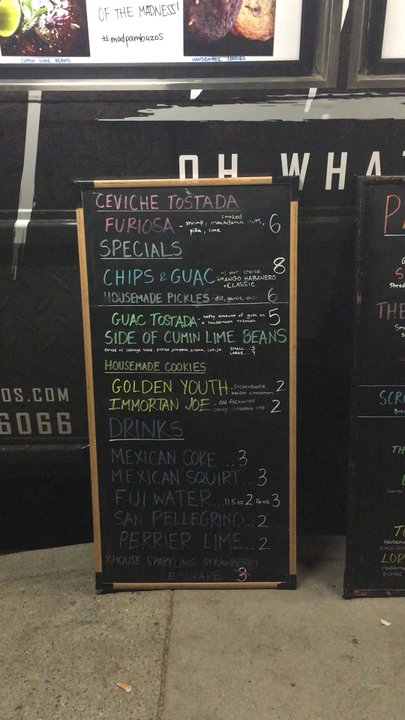 OF THE MADNESS!
#madpambazos
CUMIN LIME BEANS
HOUSEMADE COOKIES
OH WHA
CEVICHE TOSTADA
FURIOSA - shrimp, smoked macadamia nuts, piña, lime 6
SPECIALS
CHIPS & GUAC w/ your choice: 8
•MANGO HABANERO
•CLASSIC
HOUSEMADE PICKLES - dill, garlic, 6
GUAC TOSTADA - hefty amount of guac on a housemade tostada 5
SIDE OF CUMIN LIME BEANS
HOUSEMADE COOKIES
GOLDEN YOUTH - snickerdoodle, mexican cinnamon 2
IMMORTAN JOE - old fashioned chip 2
DRINKS
MEXICAN COKE ..3
MEXICAN SQUIRT...3
FIJI WATER...11.5 oz 2 16 oz 3
SAN PELLEGRINO...2
PERRIER LIME...2
HOUSE SPARKLING STRAWBERRY
LEMONADE 3
OS.COM
6066